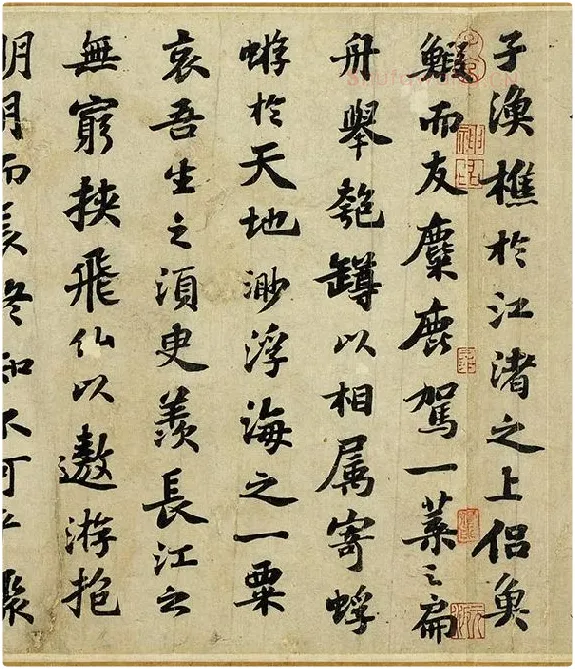 子漁樵於江渚之上侶魚
鰕而友麋鹿駕一葉之扁
舟舉匏罇以相属寄蜉
蝣於天地渺浮海之一粟
哀吾生之須臾羨長江之
無窮挾飛仙以遨游抱
明月而長終知不可乎驟